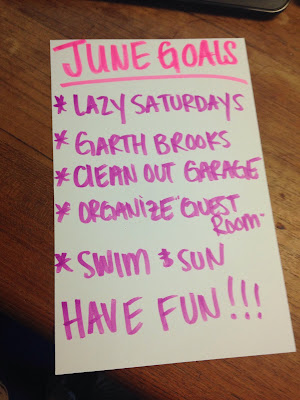 JUNE GOALS
* LAZY SATURDAYS
* GARTH BROOKS
* CLEAN OUT GARAGE
* ORGANIZE GUEST
ROOM
* SWIM & SUN
HAVE FUN!!!